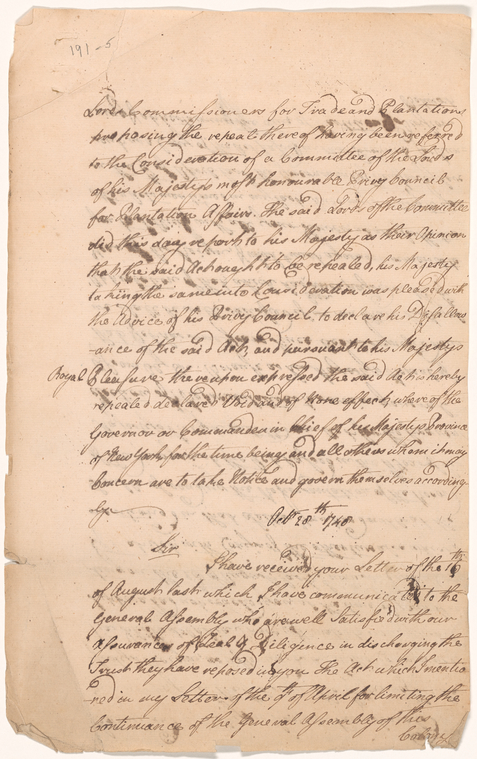 191-5
Lords Commissioners for Trade and Plantations
proposing the repeal thereof having been referred
to the Consideration of a Committee of the Lords
of his Majestys most honourable Privy Council
for Plantation Affairs. The said Lords of the Committee
did this day report to his Majesty as their Opinion
that the said Act ought to be repealed, his Majesty
taking the same into Consideration was pleased with
the Advice of his Privy Council to declare his Disallow
ance of the said Act, and pursuant to his Majestys
Royal Pleasure thereupon expressed the said Act is hereby
repealed declared Void and of none effect, where of the
Governor or Commander in Chief of his Majestys Province
of New York for the time being and all others whom it may
Concern are to take Notice and govern themselves according
ly
Octr. 28th 1748
Sir
I have received your Letter of the
of August last which I have communicated to the
General Assembly who are well Satisfied with our
Assurances of Zeal & Diligence in discharging the
Trust they have reposed in you The Act which I mentio
ned in my Letter of the 9th of April for limiting the
Continuance of the General Assembly of this
Colony